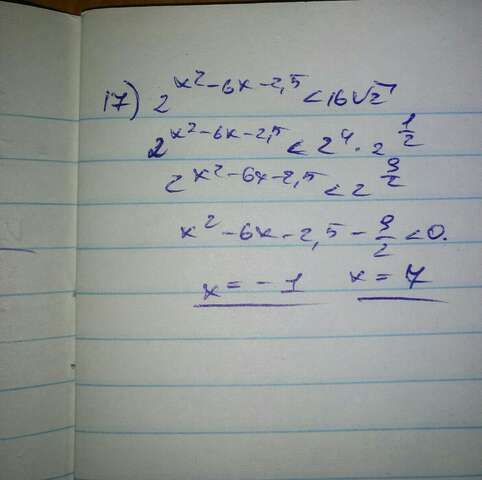 17) 2^(x²-6x-2,5) < 16√2
2^(x²-6x-2,5) < 2^4 · 2^(1/2)
2^(x²-6x-2,5) < 2^(9/2)
x² - 6x - 2,5 - 9/2 < 0.
x = - 1   x = 7